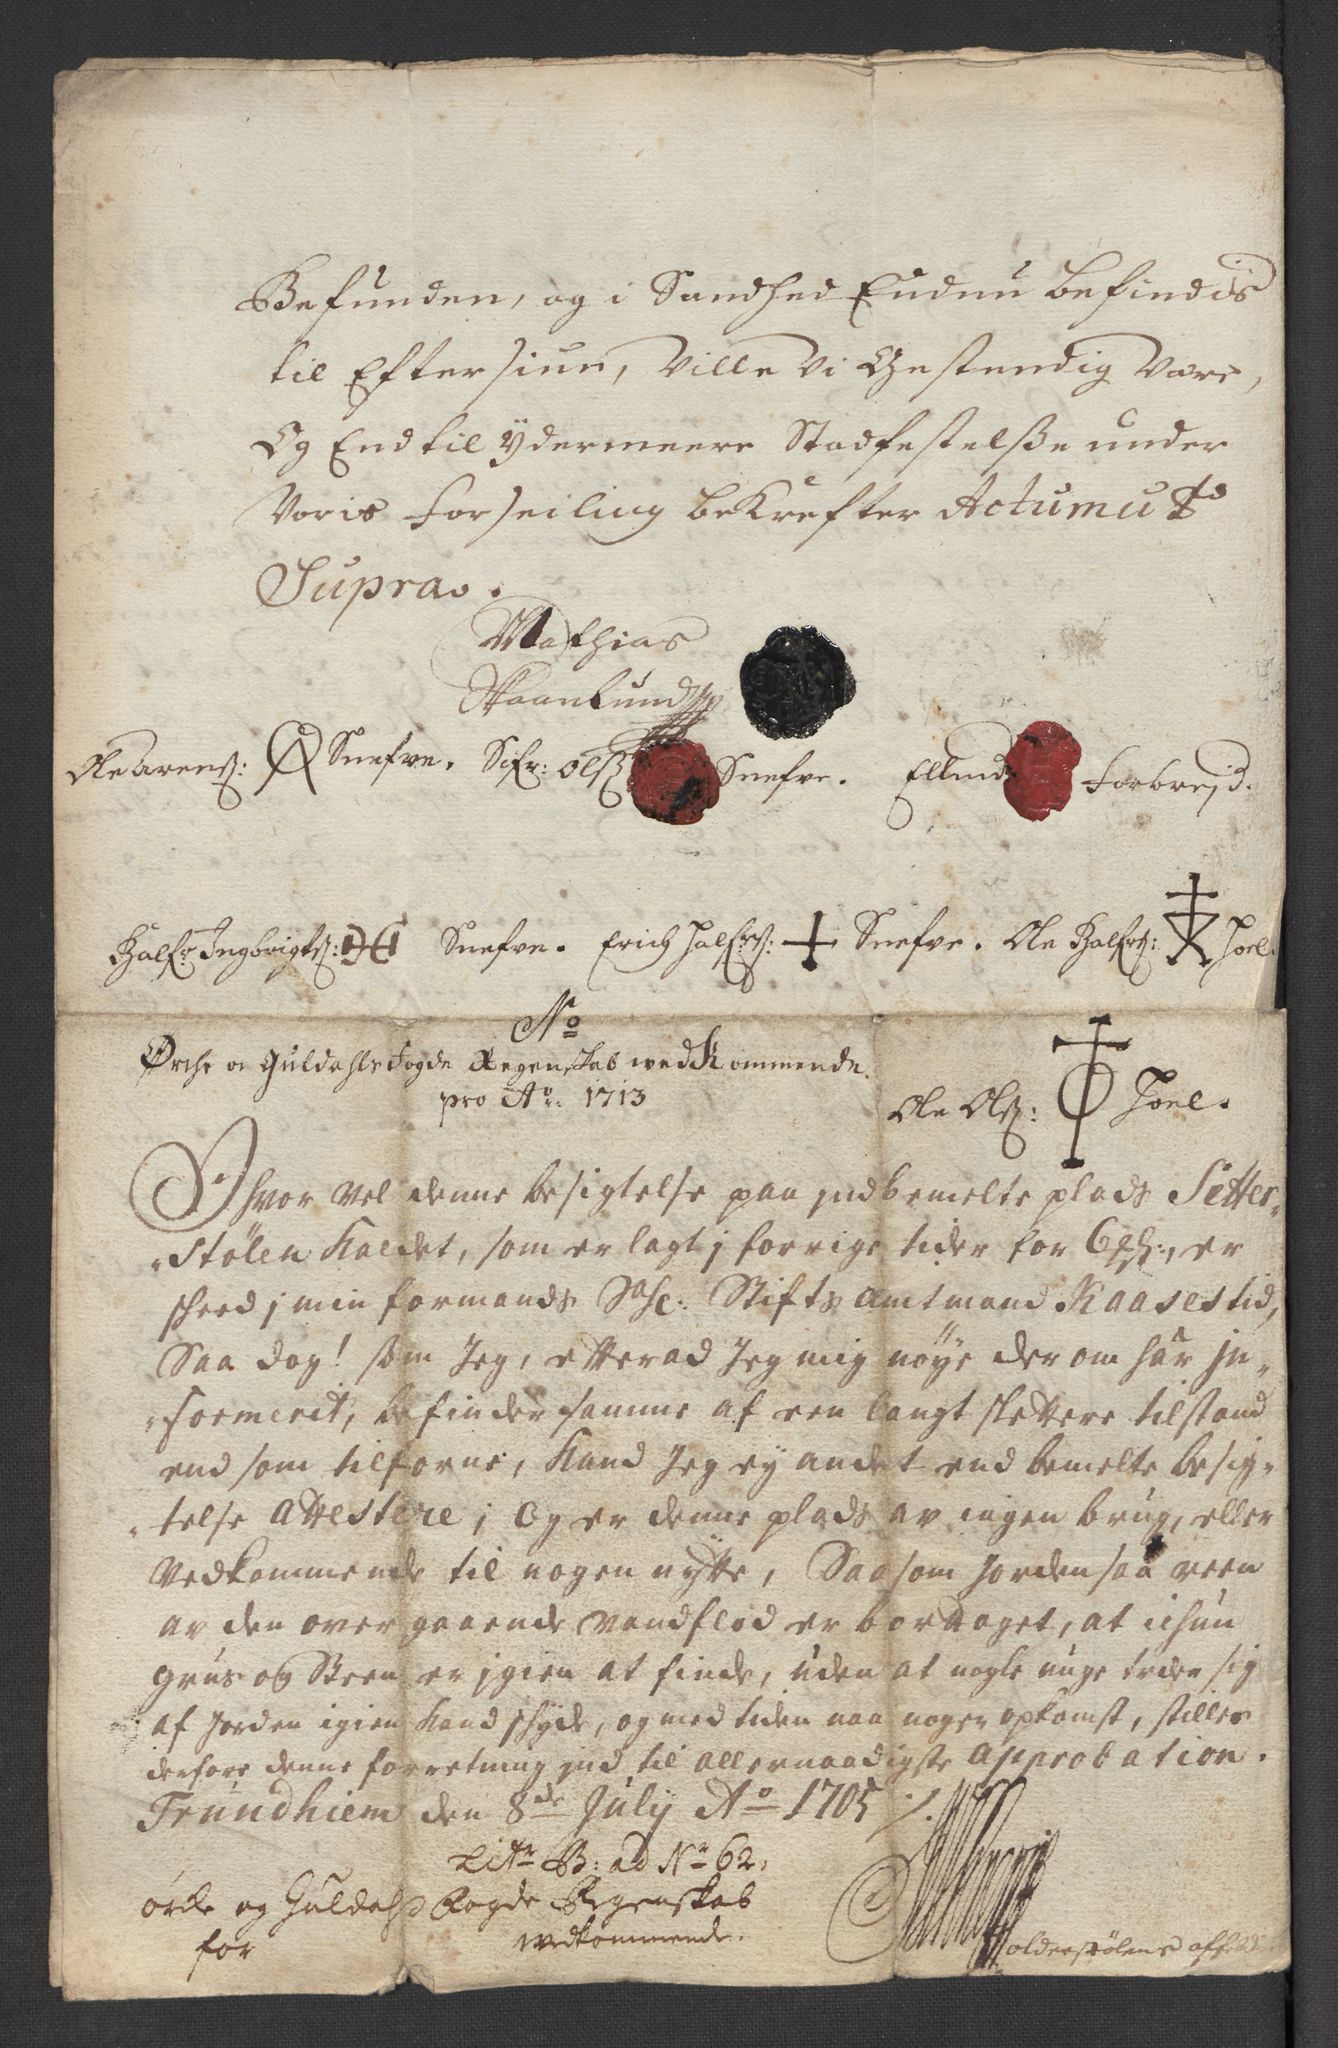 Befunden, og i Sandhed Endnu befindis
til Eftersiun, Ville Vi Gestendig Være,
Og End til ÿdermeere Stadfestelße under
Voris forseiling bekrefter Actum ut
Supra.
Mathias
Skaanlund
Ole Arens: Snefve. Sifr: Olß Snefve. Ellend Forbrejd.
Halfr Ingbrigtß: Snefve. Erich Halfrß: Snefve. Ole Halfrß: Hoel.
No
Ørche og Guldahls Fogde Regenskab wedkommende.
pro Ao: 1713
Ole Olß: Hoel.
Ihvor vel denne besigtelse paa jndbemelte plads Setter-
stølen kaldet, som er lagt j forrige tider for, er
skeed j min formands Sal: Stifts amtmand Kaases tid,
Saa dog! som Jeg, efterad Jeg mig nøye derom har jn-
formerit, befinder samme af een langt slettere tilstand
end som tilforne, kand Jeg ey andet end bemelte besig-
telse attestere; og er denne plads av ingen brug, eller
vedkommende til nogen nytte, Saasom Jorden saa reen
av den overgaaende vandflod er borttaget, at ichun
grus og Steen er jgien at finde, uden at nogle unge træer sig
af Jorden igien kand skyde, og med tiden naa nogen opkomst, stilles
derfore denne forretning jnd til allernaadigste approbation.
Trundhiem den 8de July Ao 1705
Litr B: ad Nr 62,
ørke og Guldahls Fogde Regenskab
for wedkommende.